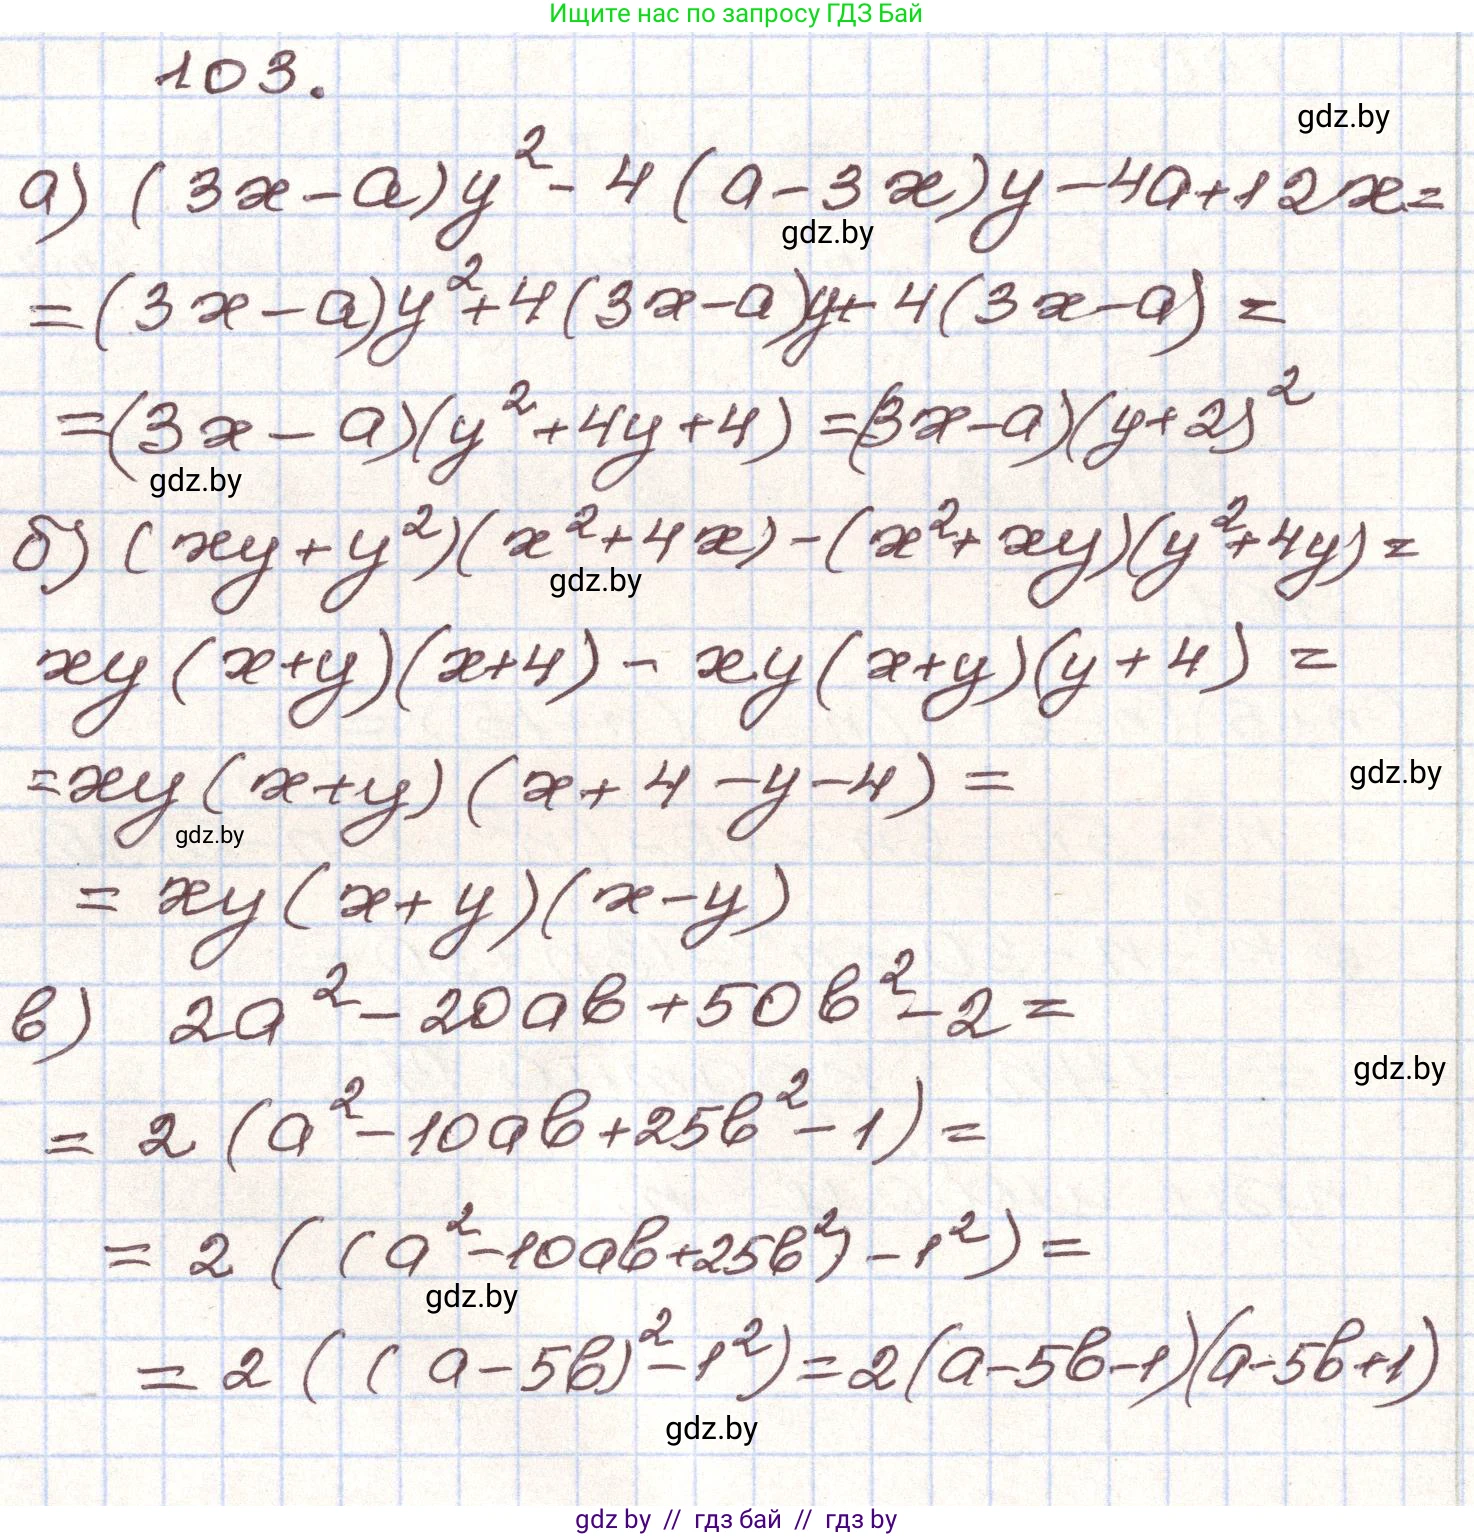 Ищите нас по запросу ГДЗ Бай
103.
gdz.by
а) (3x-a)y²-4(a-3x)y-4a+12x=
gdz.by
=(3x-a)y²+4(3x-a)y+4(3x-a)=
=(3x-a)(y²+4y+4)=(3x-a)(y+2)²
gdz.by
б) (xy+y²)(x²+4x)-(x²+xy)(y²+4y)=
gdz.by
xy(x+y)(x+4)-xy(x+y)(y+4)=
=xy(x+y)(x+4-y-4)=
gdz.by
gdz.by
=xy(x+y)(x-y)
в) 2a²-20ab+50b²-2=
gdz.by
=2(a²-10ab+25b²-1)=
=2((a²-10ab+25b²)-1²)=
gdz.by
=2((a-5b)²-1²)=2(a-5b-1)(a-5b+1)
gdz.by
gdz by // гдз бай // гдз by